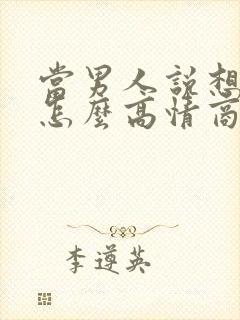 當男人說想
怎麼高情商
李遵英